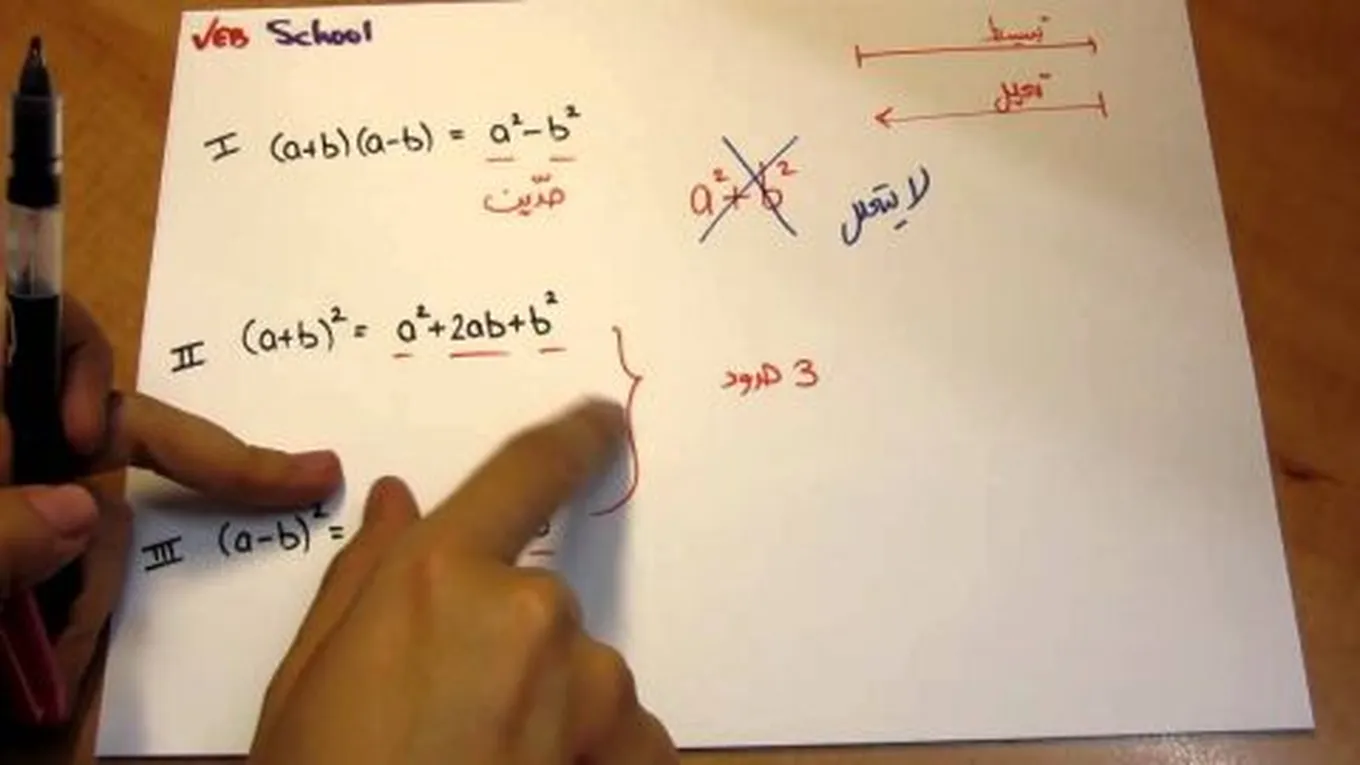 VEB School
تبسيط
تحليل
I (a+b)(a-b) = a²-b²
حدّين
a²+b²
لا يتحلل
II (a+b)²= a²+2ab+b²
3 حدود
III (a-b)²=